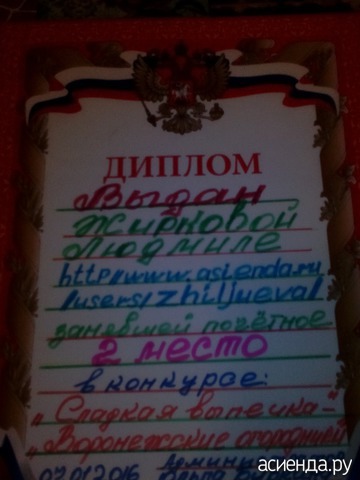 ДИПЛОМ
Выдан
Жирковой
Людмиле
http://www.asienda.ru
/users/zhiljueva/
занявшей почётное
2 место
в конкурсе:
"Сладкая выпечка-"
"Воронежские огородники
07.01.2016 Админи
асиенда.ru